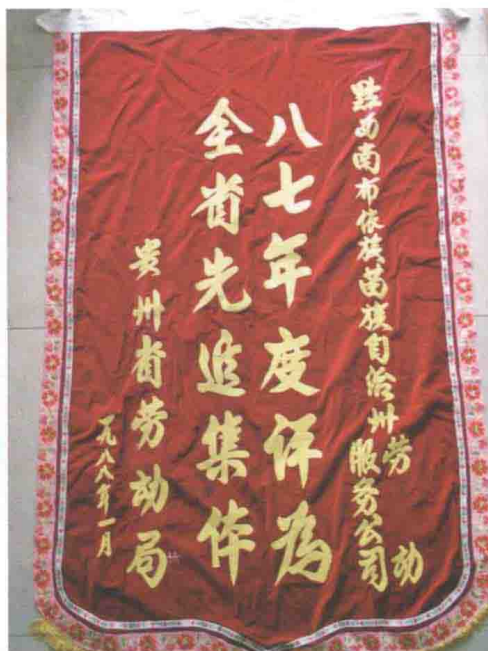 黔西南布依族苗族自治州劳动
服务公司
八七年度评为
全省先进集体
贵州省劳动局
一九八八年一月